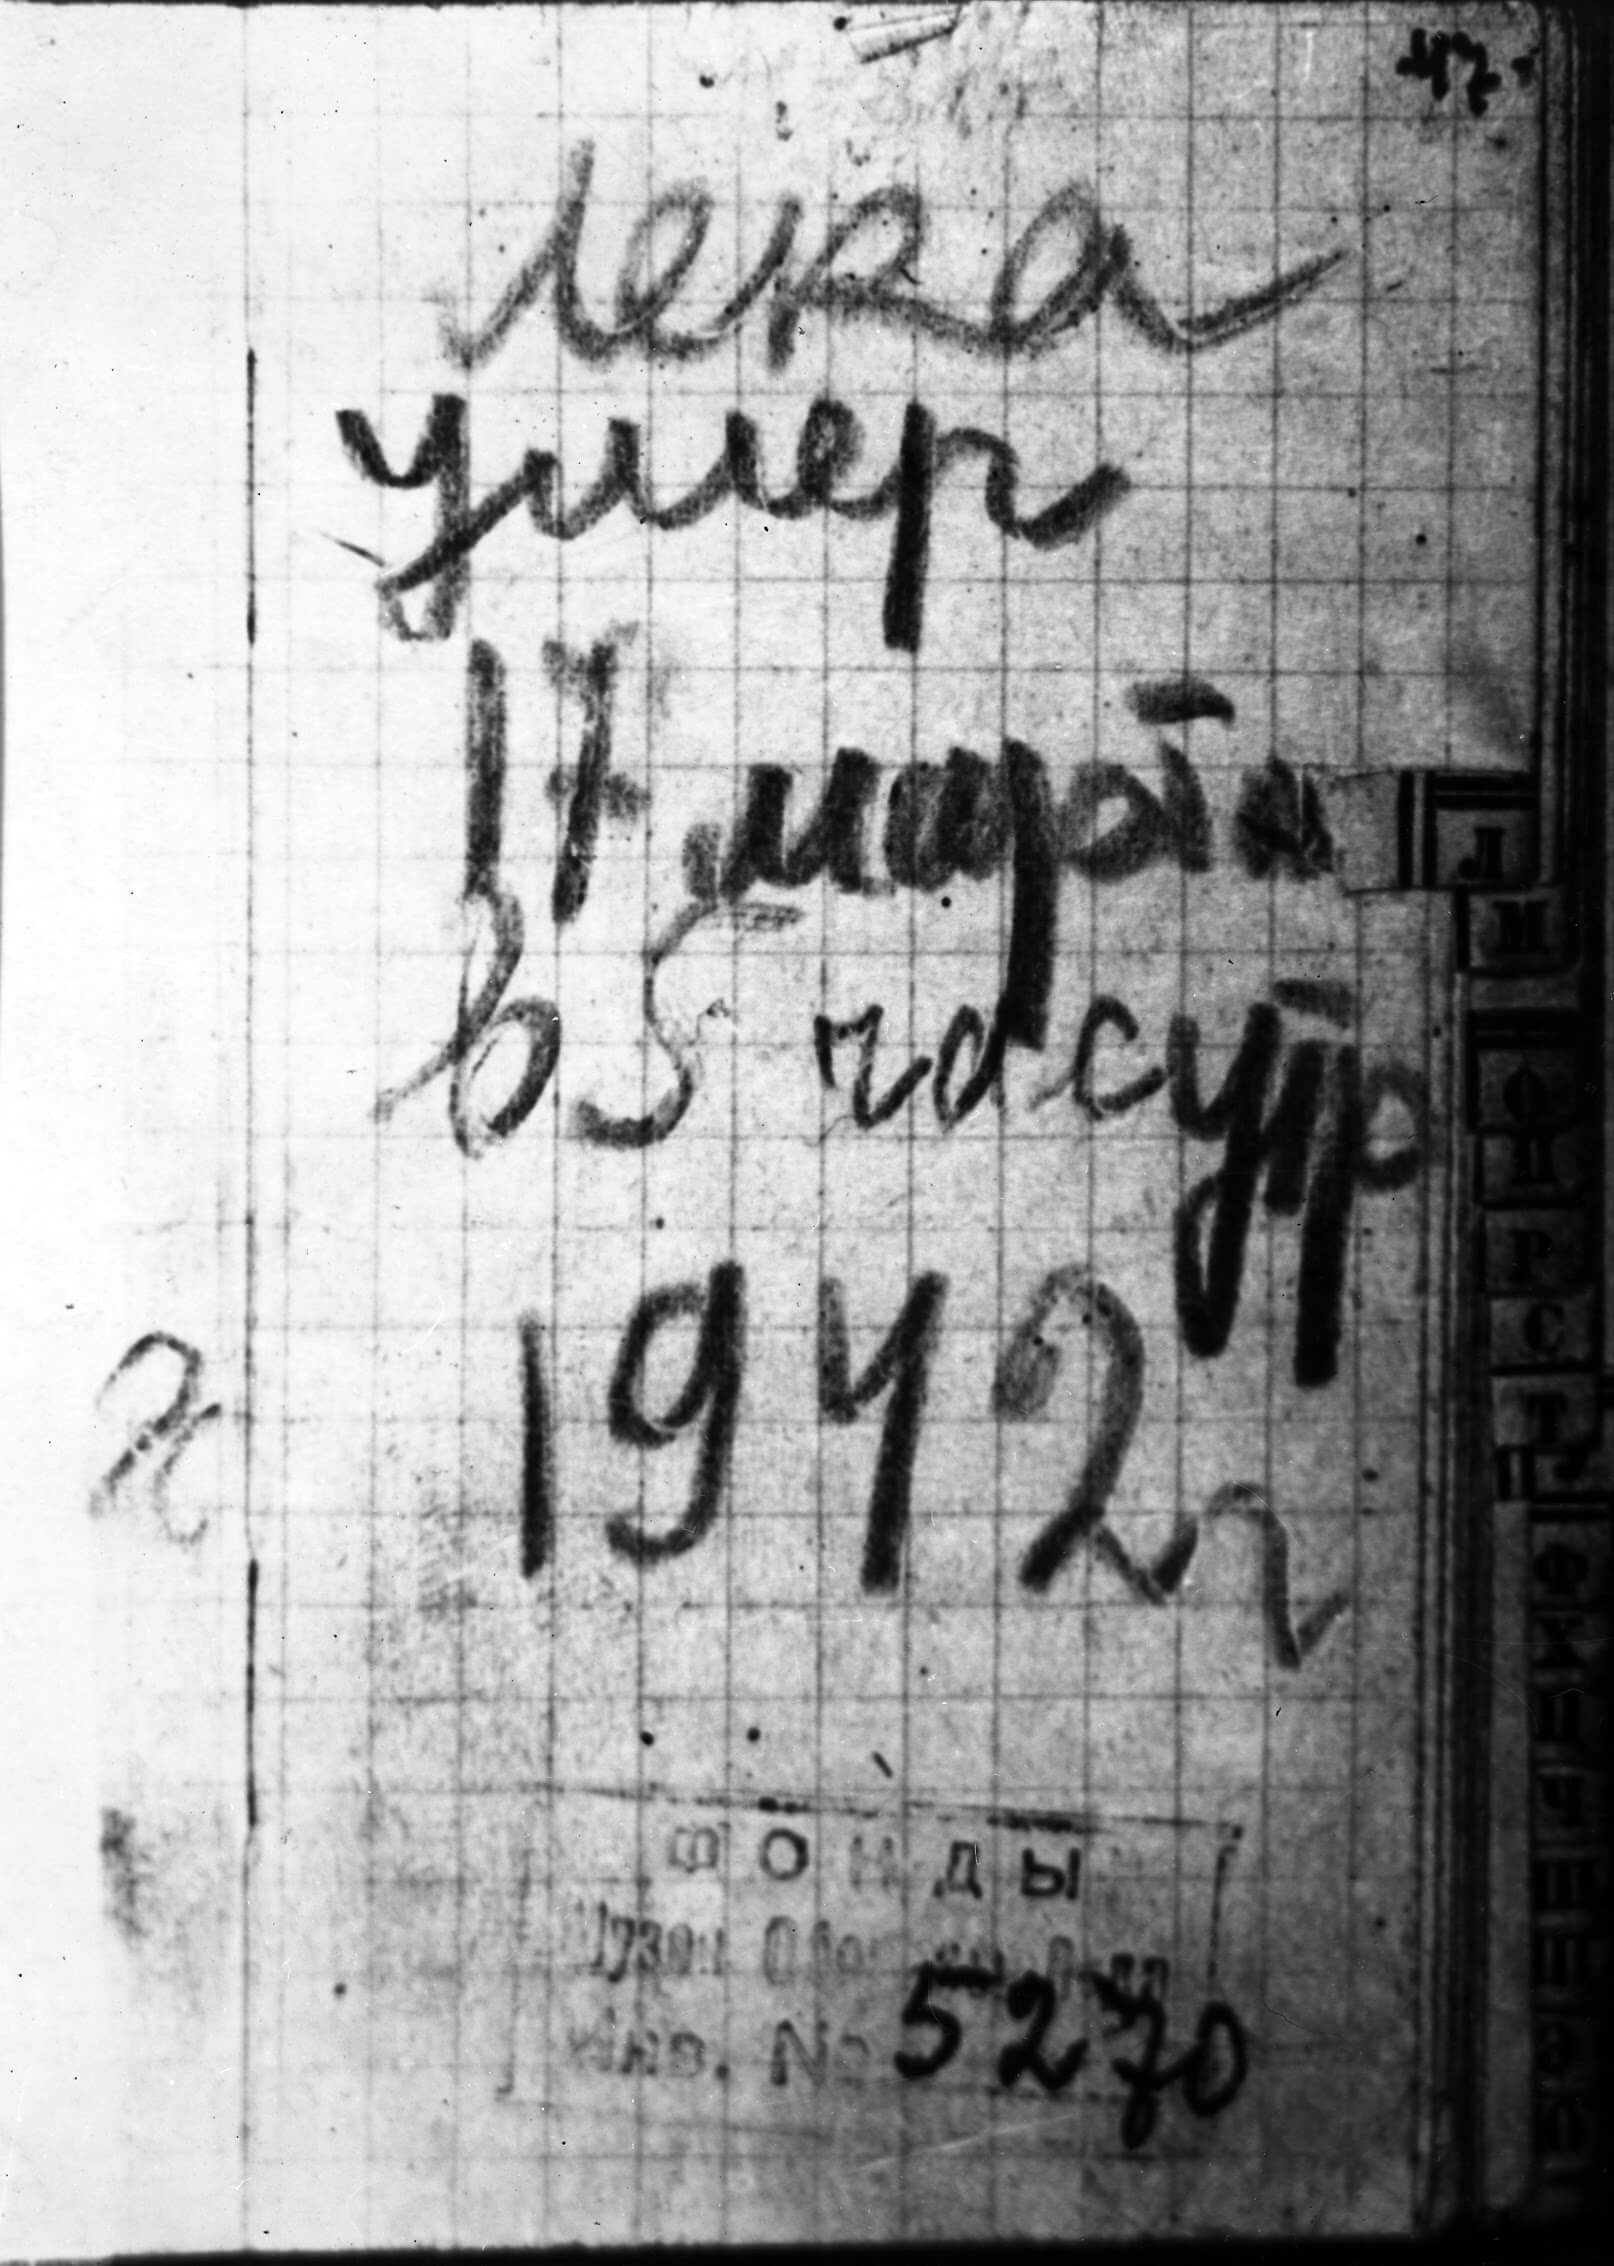 47.
Лека
умер
17 марта
в 5 часутр
1942 г
Л
М
П
Р
С
Т
ФОНДЫ
Инв. № 5270